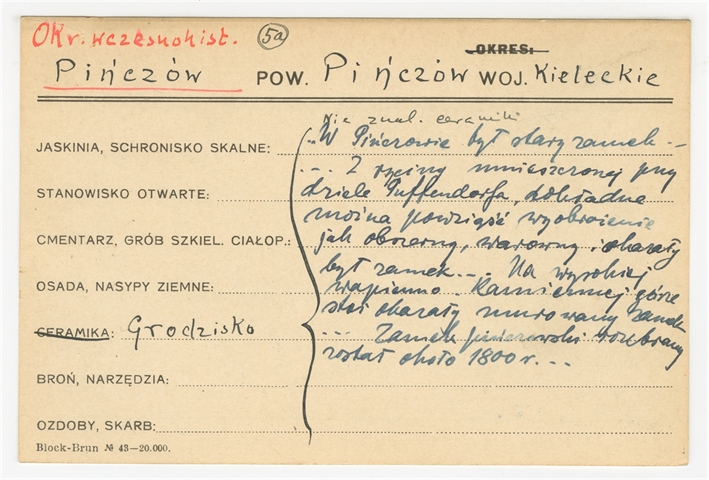 Okr. wczesnohist.
5a
OKRES:
Pińczów POW. Pińczów WOJ. Kieleckie
Nie znal. ceramiki
JASKINIA, SCHRONISKO SKALNE:
STANOWISKO OTWARTE:
CMENTARZ, GRÓB SZKIEL. CIAŁOP.:
OSADA, NASYPY ZIEMNE:
CERAMIKA: Grodzisko
BROŃ, NARZĘDZIA:
OZDOBY, SKARB:
„W Pińczowie był stary zamek –
... Z ryciny umieszczonej przy
dziele Puffendorfa, dokładne
można powziąść wyobrażenie
jak obszerny, warowny i okazały
był zamek ... Na wysokiej
wapienno-kamiennej górze
stoi okazały murowany zamek
... Zamek pińczowski rozebrany
został około 1800 r. ...
Block-Brun № 43—20.000.